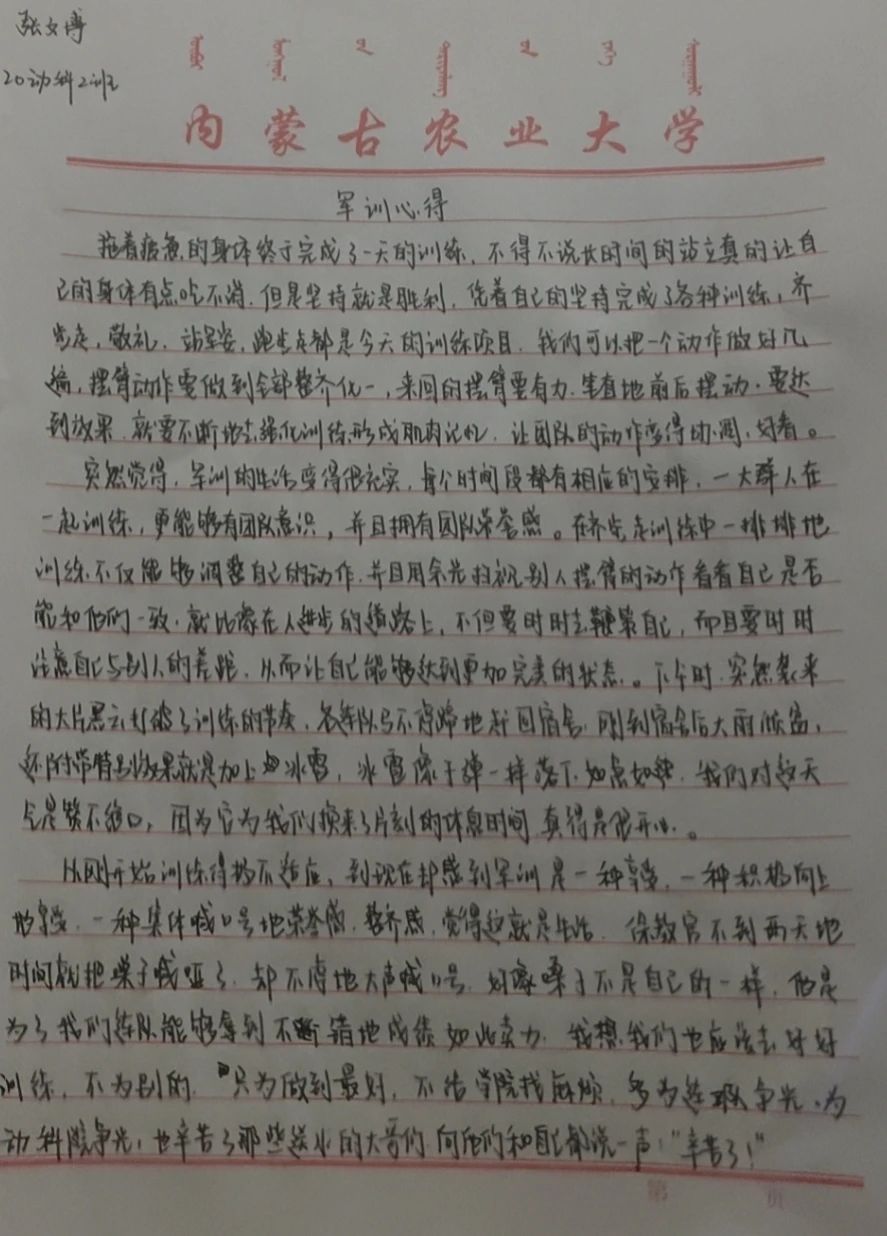 张文博
20动科2班
内蒙古农业大学
军训心得
拖着疲惫的身体终于完成了一天的训练，不得不说长时间的站立真的让自
己的身体有点吃不消，但是坚持就是胜利，凭着自己的坚持完成了各种训练，齐
步走，敬礼，站军姿，跑步走都是今天的训练项目，我们可以把一个动作做好几
遍，摆臂动作要做到全部整齐化一，来回的摆臂要有力，笔直地前后摆动，要达
到效果，就要不断地去强化训练形成肌肉记忆，让团队的动作变得协调，好看。
突然觉得，军训的生活变得很充实，每个时间段都有相应的安排，一大群人在
一起训练，更能够有团队意识，并且拥有团队荣誉感。在齐步走训练中一排排地
训练不仅能够调整自己的动作，并且用余光扫视别人摆臂的动作看看自己是否
能和他们一致，就比像在人进步的道路上，不但要时时去鞭策自己，而且要时时
注意自己与别人的差距，从而让自己能够达到更加完美的状态。下午时，突然袭来
的大片黑云打破了训练的节奏，各连队马不停蹄地赶回宿舍，刚到宿舍后大雨倾盆，
还附带特别效果就是加上冰雹，冰雹像子弹一样落下，如点如梦，我们对这天
气是赞不绝口，因为它为我们换来了片刻的休息时间，真得是很开心。
从刚开始训练得极不适应，到现在却感到军训是一种享受，一种积极向上
地享受，一种集体喊口号地荣誉感，整齐感，觉得这就是生活，徐教官不到两天地
时间就把嗓子喊哑了，却不停地大声喊口号，好像嗓子不是自己的一样，他是
为了我们连队能够拿到不断错地成绩如此卖力，我想我们也应该去好好
训练，不为别的，只为做到最好，不给学院找麻烦，多为连队争光，为
动科院争光，也辛苦了那些送水的大哥们，向他们和自己都说一声："辛苦了！"
第 页